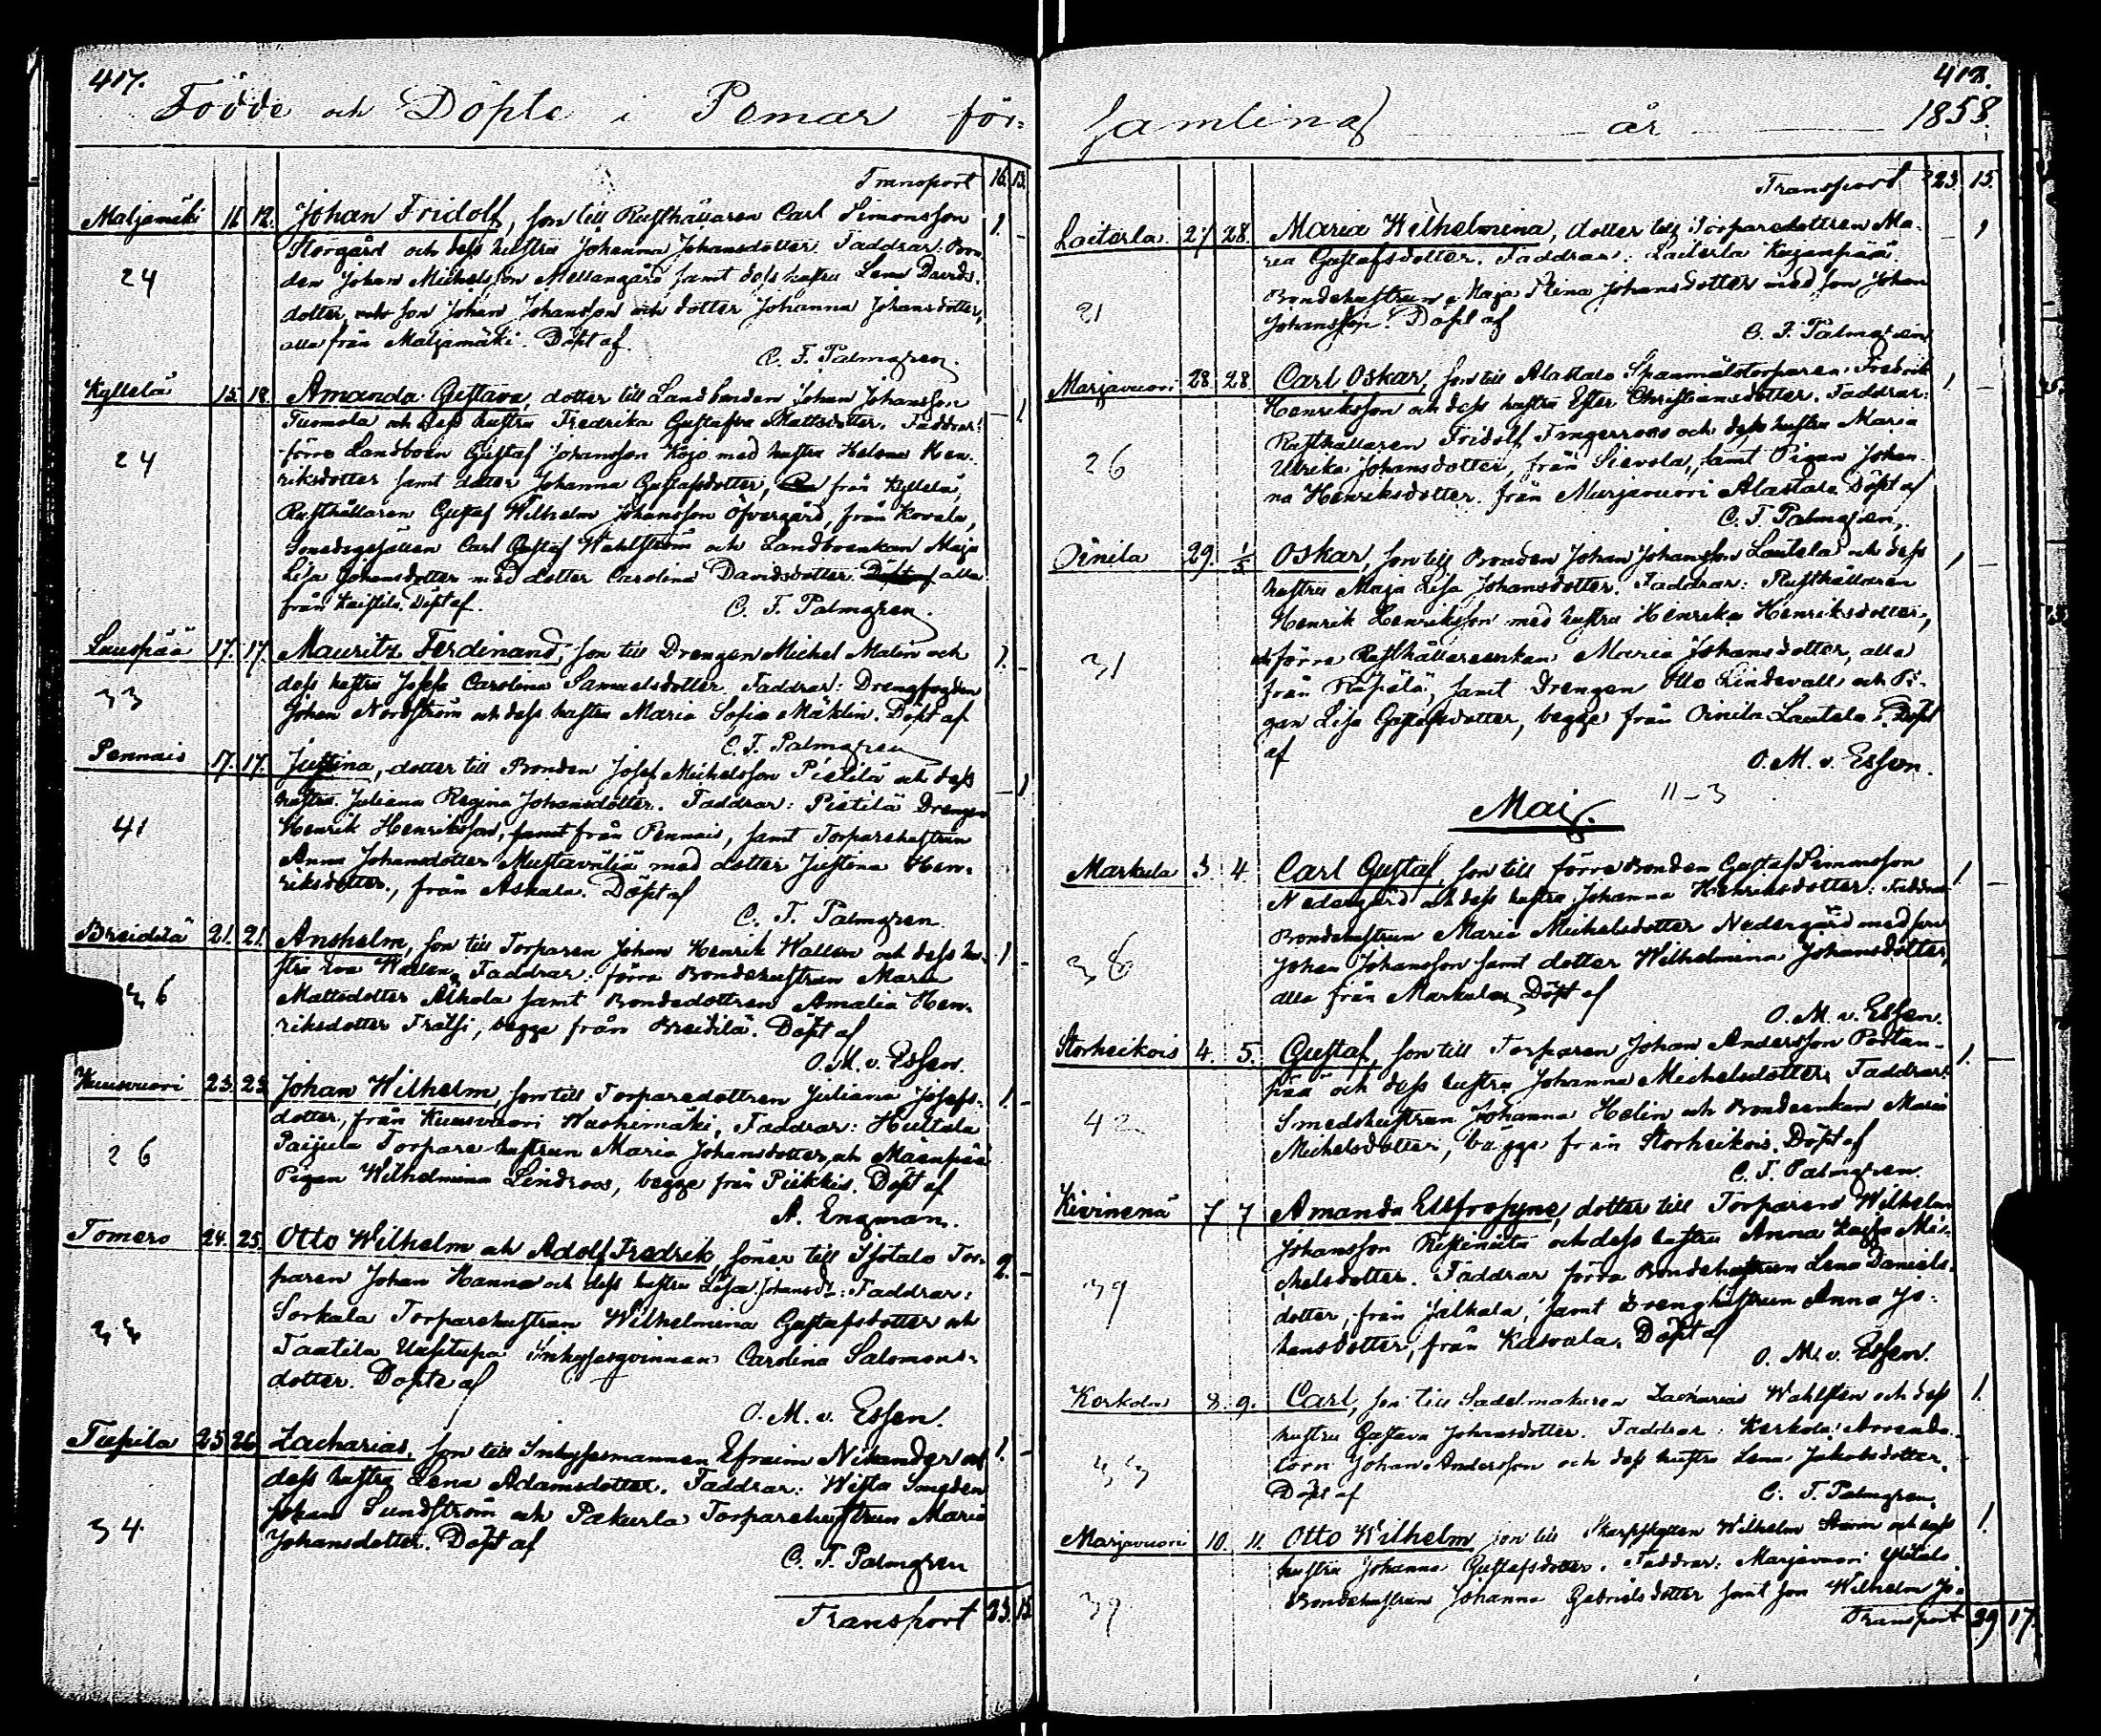 417.
Födde och Döpte i Pemar för-
Transport 16. 13.
Maljamäki 11. 12. Johan Fridolf, son till Rusthållaren Carl Simonsson 1. -
Storgård och dess hustru Johanna Johansdotter. Faddrar: Bon-
24 den Johan Michelsson Mellangård samt dess hustru Lena Davids-
dotter, son Johan Johansson och dotter Johanna Johansdotter,
alla från Maljamäki. Döpt af
C. F. Palmgren.
Kyllelä 15. 18. Amanda Gustava, dotter till Landbonden Johan Johansson - 1
Tuomola och dess hustru Fredrika Gustafva Mattsdotter. Faddrar:
förre Landboen Gustaf Johansson Kojo med hustru Helena Hen-
24 riksdotter samt dotter Johanna Gustafsdotter, från Kyllelä,
Rusthållaren Gustaf Wilhelm Johansson Öfvergård, från Kovala,
Carl Gustaf Wahlström och Landboenkan Maja
Lisa Johansdotter med dotter Carolina Davidsdotter. alla
från Döpt af.
C. F. Palmgren.
17. 17. Mauritz Ferdinand, son till Drengen Michel Malin och 1. -
33 dess hustru Josefa Carolina Samuelsdotter. Faddrar: Drengfogden
Johan Nordström och dess hustru Maria Sofia Mäklin. Döpt af
C. F. Palmgren
Pennais 17. 17. Justina, dotter till Bonden Josef Michelsson Pietilä och dess - 1
hustru Juliana Regina Johansdotter. Faddrar: Pietilä Drengen
41 Henrik Henriksson, från Pennais, samt Torparehustrun
Anna Johansdotter Mustavälja med dotter Justina Hen-
riksdotter, från Askala. Döpt af
C. F. Palmgren.
Breidilä 21. 21. Anshelm, son till Torparen Johan Henrik Wallen och dess hu- 1 -
stru Eva Wallen. Faddrar: förra Bondehustrun Maria
26 Mattsdotter Alhola samt Bondedottren Amalia Hen-
riksdotter Frälsi, begge från Breidilä. Döpt af
O. M. v. Essen.
Kuusvuori 23. 23. Johan Wilhelm, son till Torparedottren Juliana Josefs- 1. -
dotter, från Kuusvuori Faddrar: Huttala
26 Paijula Torpare-hustrun Maria Johansdotter och Mäenpää
Pigan Wilhelmina Lindroos, begge från Piikkis. Döpt af
A. Engman.
Tomero 24. 25. Otto Wilhelm och Adolf Fredrik, söner till Isotalo Tor- 2. -
paren Johan Hanna och dess hustru Lisa Johansdr. Faddrar:
Sorkala Torparehustrun Wilhelmina Gustafsdotter och
Tantila Uusitupa Inhysesqvinnan Carolina Salomons-
dotter. Döpte af
O. M. v. Essen.
25 26 Zacharias, son till Inhysesmannen Efraim Nikander och 1. -
dess hustru Lena Adamsdotter. Faddrar: Wista
34 Johan Sundström och Pakurla Torparehustrun Maria
Johansdotter. Döpt af
C. F. Palmgren
Transport 23. 15.
418.
samling år 1858.
Transport 23. 15.
27 28. Maria Wilhelmina, dotter till Torparedottren Ma- - 1
ria Gustafsdotter. Faddrar:
21 Bondehustrun Maja Stina Johansdotter med son Johan
Johansson. Döpt af
C. F. Palmgren
Marjavuori 28 28 Carl Oskar, son till Alastalo Spanmålstorparen Fredrik 1 -
Henriksson och dess hustru Ester Christiansdotter. Faddrar:
Rusthållaren Fridolf Tingerroos och dess hustru Maria
26 Ulrika Johansdotter, från Sievola, samt Pigan Johan-
na Henriksdotter från Marjavuori Alastalo. Döpt af
C. F. Palmgren.
Oinila 29. 1/5 Oskar, son till Bonden Johan Johansson Lautela och dess 1 -
hustru Maja Lisa Johansdotter. Faddrar: Rusthållaren
Henrik Henriksson med hustru Henrika Henriksdotter,
31 och förra Rusthållareenkan Maria Johansdotter, alla
från samt Drengen Otto Lindevall och Pi-
gan Lisa Gustafsdotter, begge från Oinila Lautela. Döpt
af
O. M. v. Essen.
11-3
Maj.
Markula 3 4 Carl Gustaf, son till förre Bonden Gustaf Simonsson 1. -
Nedergård och dess hustru Johanna Henriksdotter. Faddrar:
Bondehustrun Maria Michelsdotter Nedergård med son
38 Johan Johansson samt dotter Wilhelmina Johansdotter,
alla från Markula. Döpt af
O. M. v. Essen.
Storheikois 4. 5. Gustaf, son till Torparen Johan Andersson Portan- 1. -
pää och dess hustru Johanna Michelsdotter. Faddrar:
42 Smedshustrun Johanna Helin och Bondeenkan Maria
Michelsdotter, bägge från Storheikois. Döpt af
C. F. Palmgren.
Kivinenä 7 7 Amanda Euffrosyne, dotter till Torparen Wilhelm
Johansson och dess hustru Anna Kajsa Mi-
chelsdotter. Faddrar förra Bondehustrun Lena Daniels-
39 dotter, från Jalkala, samt Drenghustrun Anna Jo-
hansdotter, från Kasvala. Döpt af
O. M. v. Essen.
Kerkola 8. 9. Carl, son till Sadelmakaren Zacharias Wahlsten och dess 1.
hustru Gustava Johansdotter. Faddrar: Kerkola Arrenda-
torn Johan Andersson och dess hustru Lena Jakobsdotter.
Döpt af C. F. Palmgren.
Marjavuori 10. 11. Otto Wilhelm, son till Skarpskytten Wilhelm Storm och dess 1.
hustru Johanna Gustafsdotter. Faddrar: Marjavuori Ylitalo
39 Bondehustrun Johanna Gabrielsdotter samt son Wilhelm Jo-
Transport 29 17.